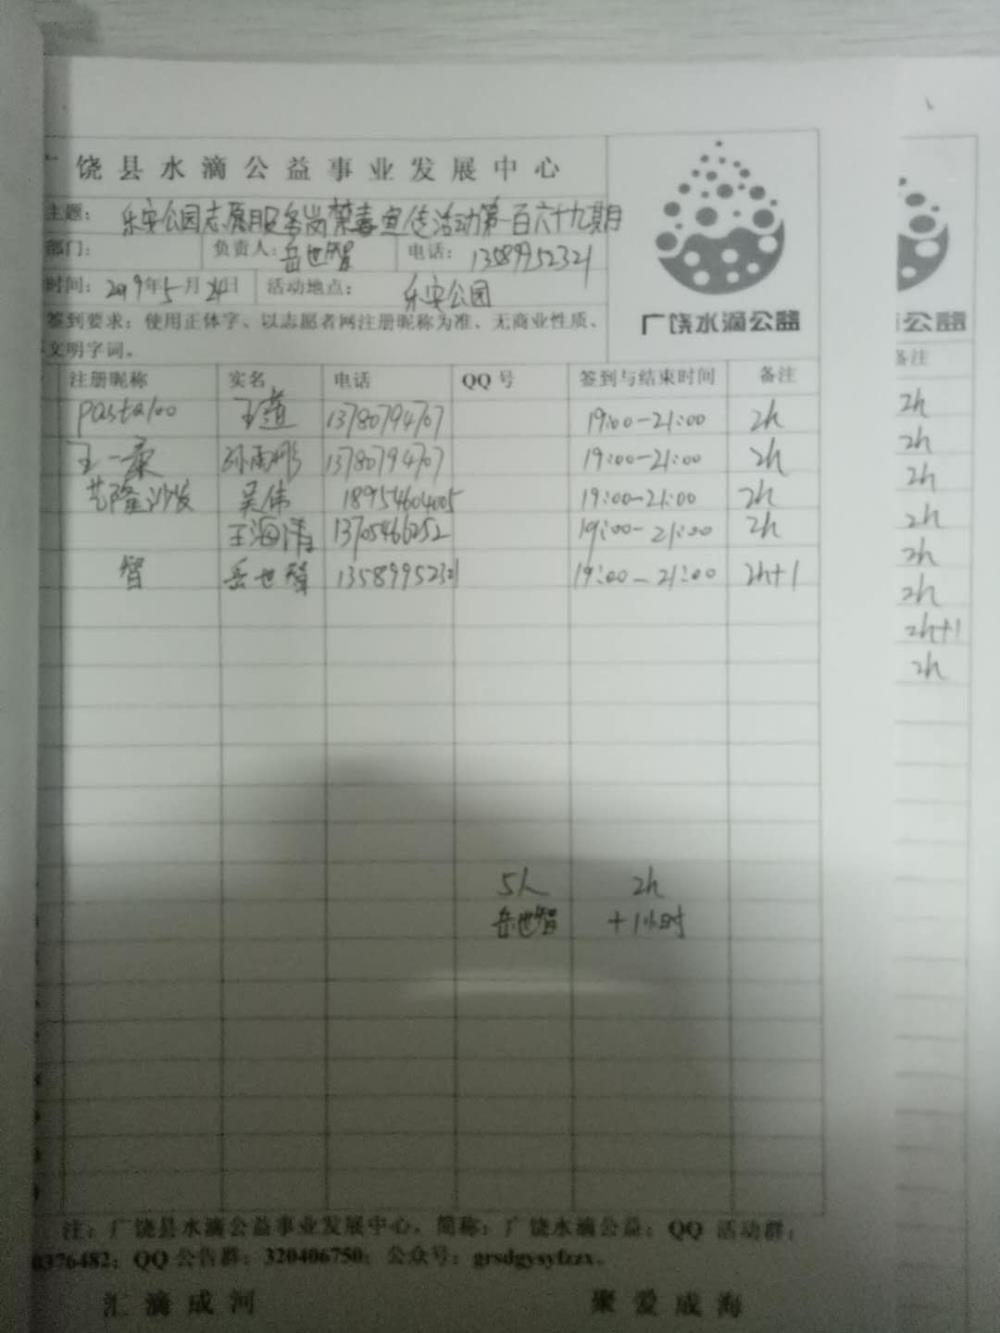 广饶县水滴公益事业发展中心
主题： 乐安公园志愿服务岗禁毒宣传活动第一百六十九期
部门： 负责人：岳世智 电话：13589952321
时间：2019年5月24日 活动地点： 乐安公园
签到要求：使用正体字、以志愿者网注册昵称为准、无商业性质、
文明字词。
广饶水滴公益
注册昵称 实名 电话 QQ号 签到与结束时间 备注
pastaloo 王 13780794707 19:00-21:00 2h
王一 13780794707 19:00-21:00 2h
艺隆沙发 吴伟 18954604005 19:00-21:00 2h
王海清 13705466252 19:00-21:00 2h
智 岳世智 13589952321 19:00-21:00 2h+1
5人 2h
岳世智 +1小时
注：广饶县水滴公益事业发展中心，简称：广饶水滴公益；QQ 活动群：
0376482；QQ公告群：320406750；公众号：grsdgysyfzzx。
汇滴成河 聚爱成海
公益
备注
2h
2h
2h
2h
2h
2h
2h+1
2h